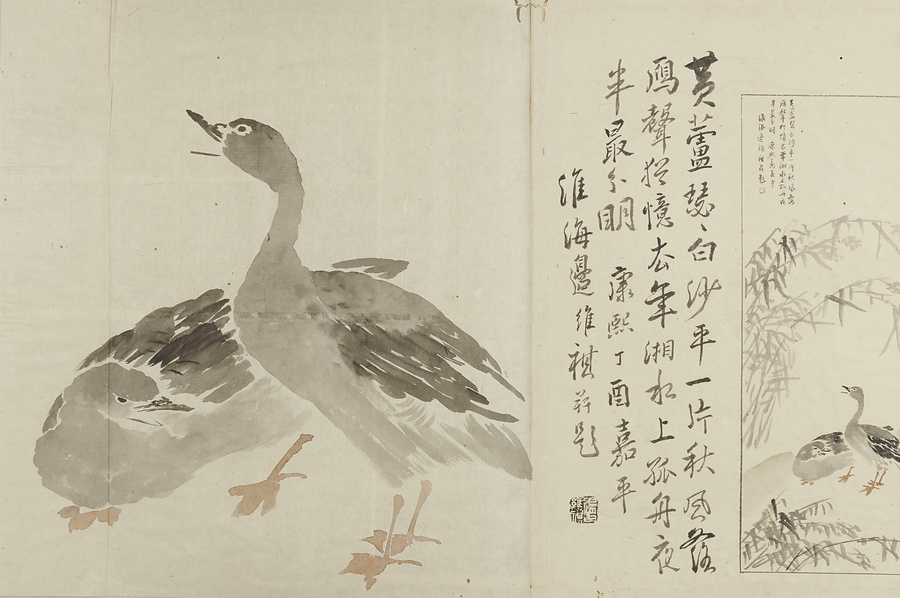 黃蘆瑟〻白沙平一片秋風落
鴈聲猶憶去年湘水上孤舟夜
半最分明 康熙丁酉嘉平
淮海邊維祺并題